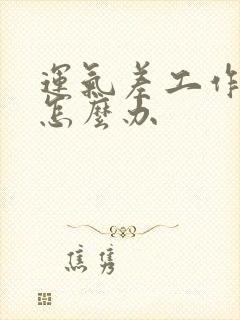 運氣差工作
怎麼办
焦隽